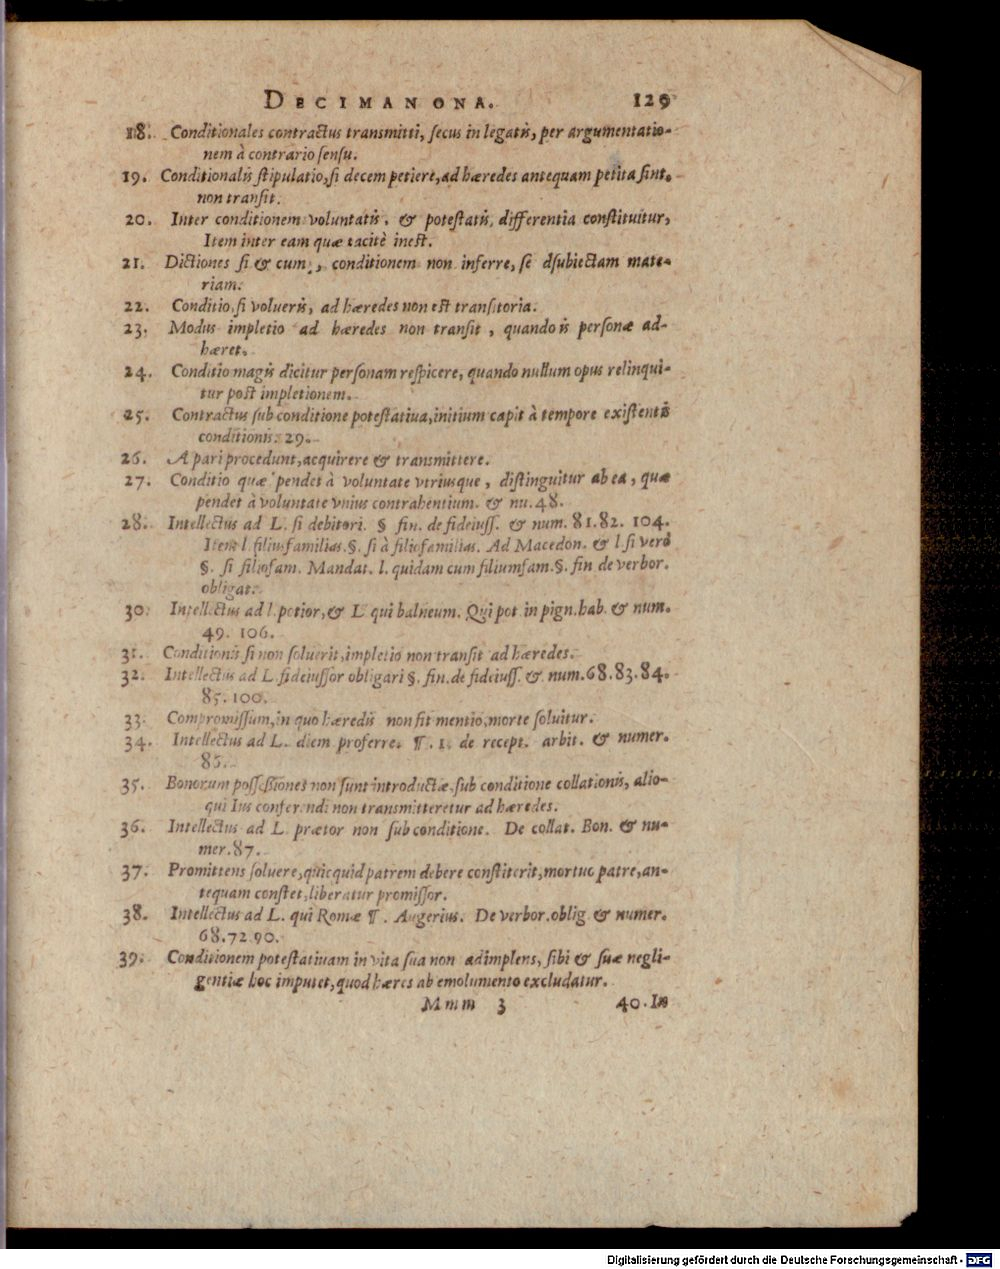 DECIMANONA. 129
18. Conditionales contractus transmitti, secus in legatis, per argumentatio-
nem à contrario sensu.
19. Conditionalis stipulatio, si decem petiere, ad hæredes antequam petita sint,
non transit.
20. Inter conditionem voluntatis, & potestatis, differentia constituitur,
Item inter eam quæ tacitè inest.
21. Dictiones si & cum, conditionem non inferre, se dsubiectam mate-
riam.
22. Conditio, si volueris, ad hæredes non est transitoria.
23. Modus impletio ad hæredes non transit, quando is personæ ad-
hæret.
24. Conditio magis dicitur personam respicere, quando nullum opus relinqui-
tur post impletionem.
25. Contractus sub conditione potestatiua, initium capit à tempore existentis
conditionis. 29.
26. A pari procedunt, acquirere & transmittere.
27. Conditio quæ pendet à voluntate vtriusque, distinguitur ab ea, quæ
pendet à voluntate vnius contrahentium. & nu. 48.
28. Intellectus ad L. si debitori. § fin. de fideiuss. & num. 81. 82. 104.
Item l. filiusfamilias. §. si à filiofamilias. Ad Macedon. & l. si verò
§. si filiofam. Mandat. l. quidam cum filiumfam. §. fin de verbor.
obligat.
30. Intellectus ad l. potior, & L qui balneum. Qui pot in pign. hab. & num.
49. 106.
31. Conditionis si non soluerit, impletio non transit ad hæredes.
32. Intellectus ad L. fideiussor obligari §. fin. de fideiuss. & num. 68. 83. 84.
85. 100.
33. Compromissum, in quo hæredis non fit mentio, morte soluitur.
34. Intellectus ad L. diem proferre. ¶. 1. de recept. arbit. & numer.
86.
35. Bonorum possessiones non sunt introductæ, sub conditione collationis, alio-
qui Ius conferendi non transmitteretur ad hæredes.
36. Intellectus ad L. prætor non sub conditione. De collat. Bon. & nu-
mer. 87.
37. Promittens soluere, quicquid patrem debere constiterit, mortuo patre, an-
tequam constet, liberatur promissor.
38. Intellectus ad L. qui Romæ ¶. Augerius. De verbor. oblig & numer.
68. 72 90.
39. Conditionem potestatiuam in vita sua non adimplens, sibi & suæ negli-
gentiæ hoc imputet, quod hæres ab emolumento excludatur.
Mmm 3 40. In
Digitalisierung gefördert durch die Deutsche Forschungsgemeinschaft - DFG